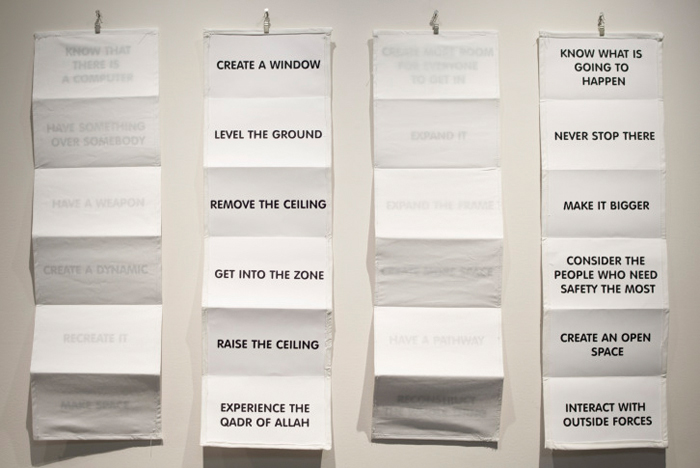 KNOW THAT
THERE IS
A COMPUTER
HAVE SOMETHING
OVER SOMEBODY
HAVE A WEAPON
CREATE A DYNAMIC
RECREATE IT
MAKE SPACE
CREATE A WINDOW
LEVEL THE GROUND
REMOVE THE CEILING
GET INTO THE ZONE
RAISE THE CEILING
EXPERIENCE THE
QADR OF ALLAH
MORE ROOM
FOR EVERYONE
TO GET IN
EXPAND IT
EXPAND THE FRAME
CREATE MORE SPACE
HAVE A PATHWAY
RECONSTRUCT
KNOW WHAT IS
GOING TO
HAPPEN
NEVER STOP THERE
MAKE IT BIGGER
CONSIDER THE
PEOPLE WHO NEED
SAFETY THE MOST
CREATE AN OPEN
SPACE
INTERACT WITH
OUTSIDE FORCES